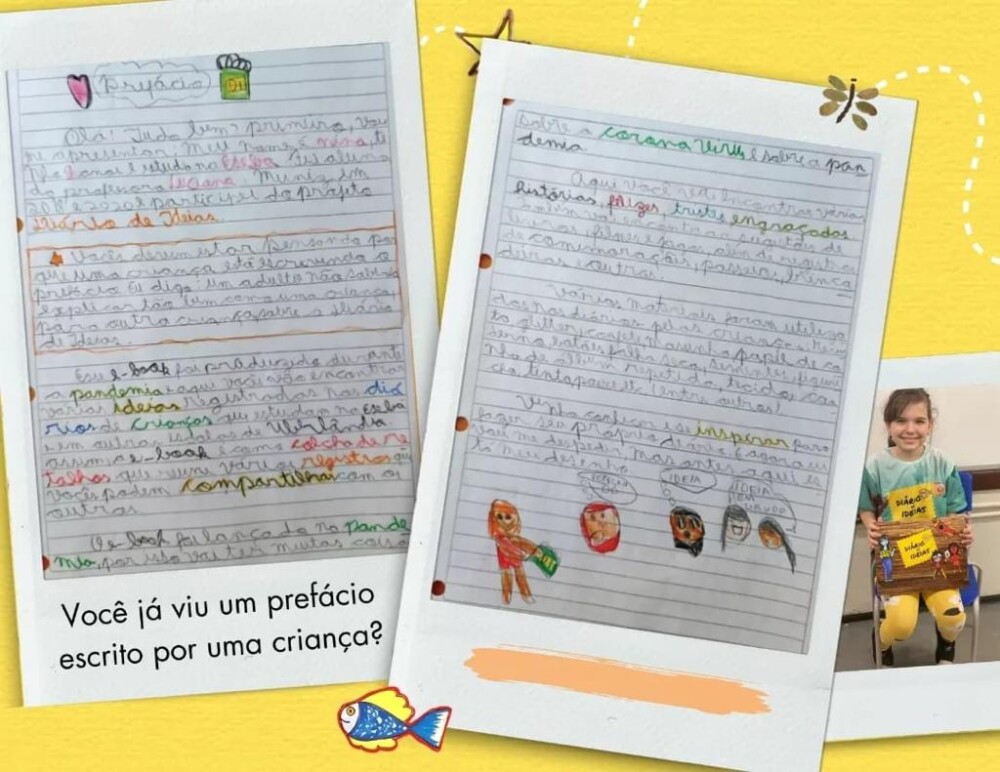 Prefácio
DI
Olá! Tudo bem? primeiro, vou
me apresentar: Meu nome é
anos e estudo na Eseba. Fui aluna
da professora Luciana Muniz, em
e 2020 e participei do projeto
Diário de Ideias.
Vocês devem estar pensando por
que uma criança está escrevendo o
prefácio. Eu digo: um adulto não saberia
explicar tão bem como uma criança,
para outra criança, sobre o Diário
de Ideias.
Esse e-book foi produzido durante
a pandemia e aqui vocês vão encontrar
várias ideias registradas nos diá
rios de crianças que estudam na Eseba
e em outras escolas de Uberlândia
assim, o e-book é como colcha de re
talhos que reúne vários registros que
vocês podem compartilhar com os
outros.
O e-book foi lançado na pande
mia, por isso vai ter muitas coisas
Você já viu um prefácio
escrito por uma criança?
sobre a corona vírus e sobre a pan
demia
Aqui você vai encontrar várias
histórias, felizes, tristes, engraçadas
Também vai encontrar sugestões de
livros, filmes e jogos, além de registros
de comemorações, passeios, brinca
deiras e outros.
Vários materiais foram utiliza
dos nos diários pelas crianças:
to, glitter, confete, massinha, papel de
folha seca, sementes, figuri
nha de álbum repetida, tecido,
(entre outros)
Venha conhecer e se inspirar para
fazer seu próprio diário. E agora eu
vou me despedir. Mas antes, aqui es
tá meu desenho
IDEIA
IDEIA
EM
MUNDO
DIÁRIO
IDEIAS
DIÁRIO
IDEIAS